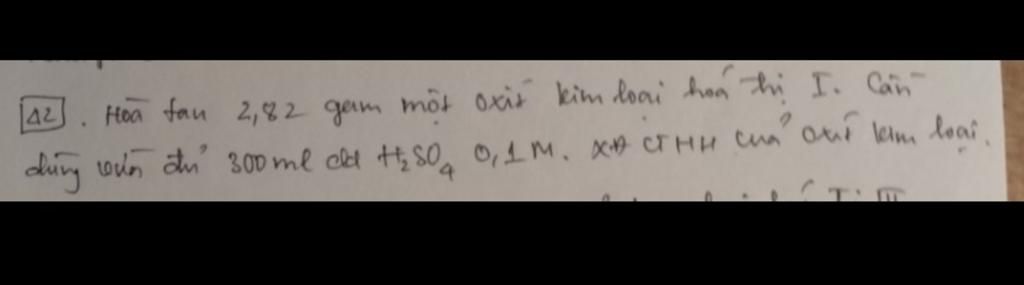 12. Hoà tan 2,82 gam một oxit kim loại hoá trị I. Cần
dùng vừa đủ 300ml dd H₂SO₄ 0,1M. XĐ CTHH của oxit kim loại.